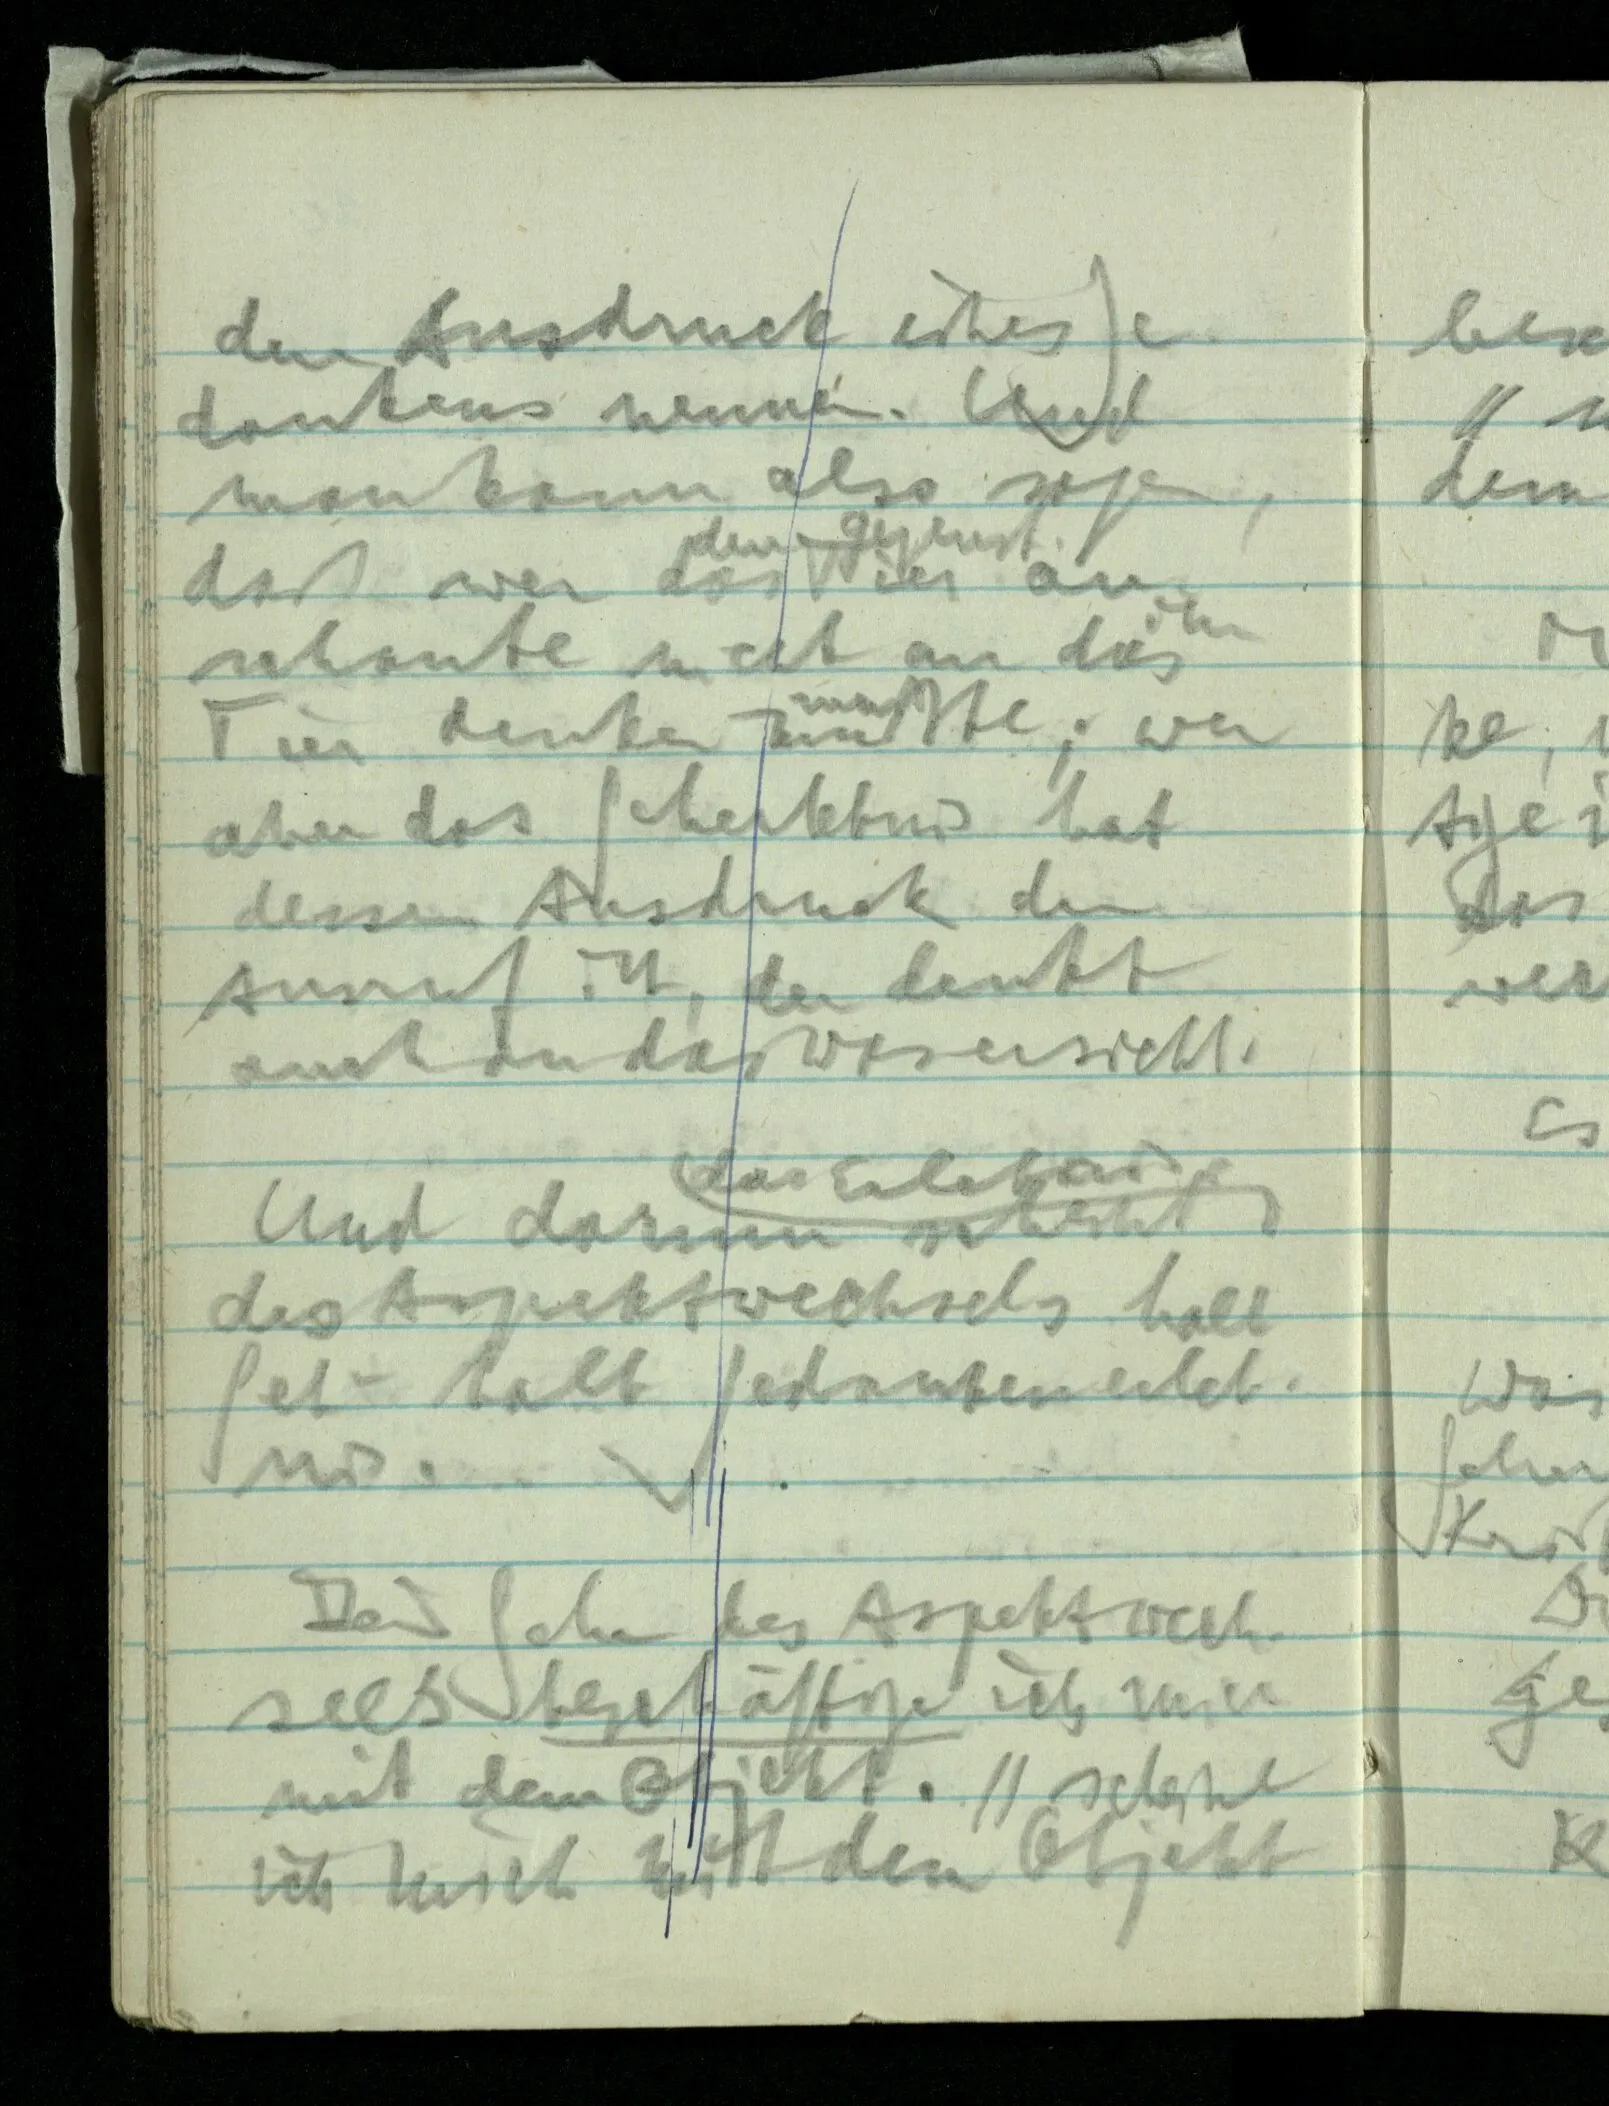 den Ausdruck eines Ge
dankens nennen. Und
man kann also sagen,
den Gegenst.
daß wer das Tier an
schaute nicht an das
ihn
Tier denken müßte; wer
aber das Seherlebnis hat
dessen Ausdruck der
Ausruf ist, der denkt
auch an das was er sieht.
das Erlebnis
Und darum scheint
des Aspektwechsels halb
Seh- halb Gedankenerleb-
nis.
Bei Sehen des Aspektwech-
sels beschäftige ich mich
mit dem Objekt. // scheine
ich mich mit dem Objekt
besc
// 
dem
ke,
das
wer
Es
Was
Ge